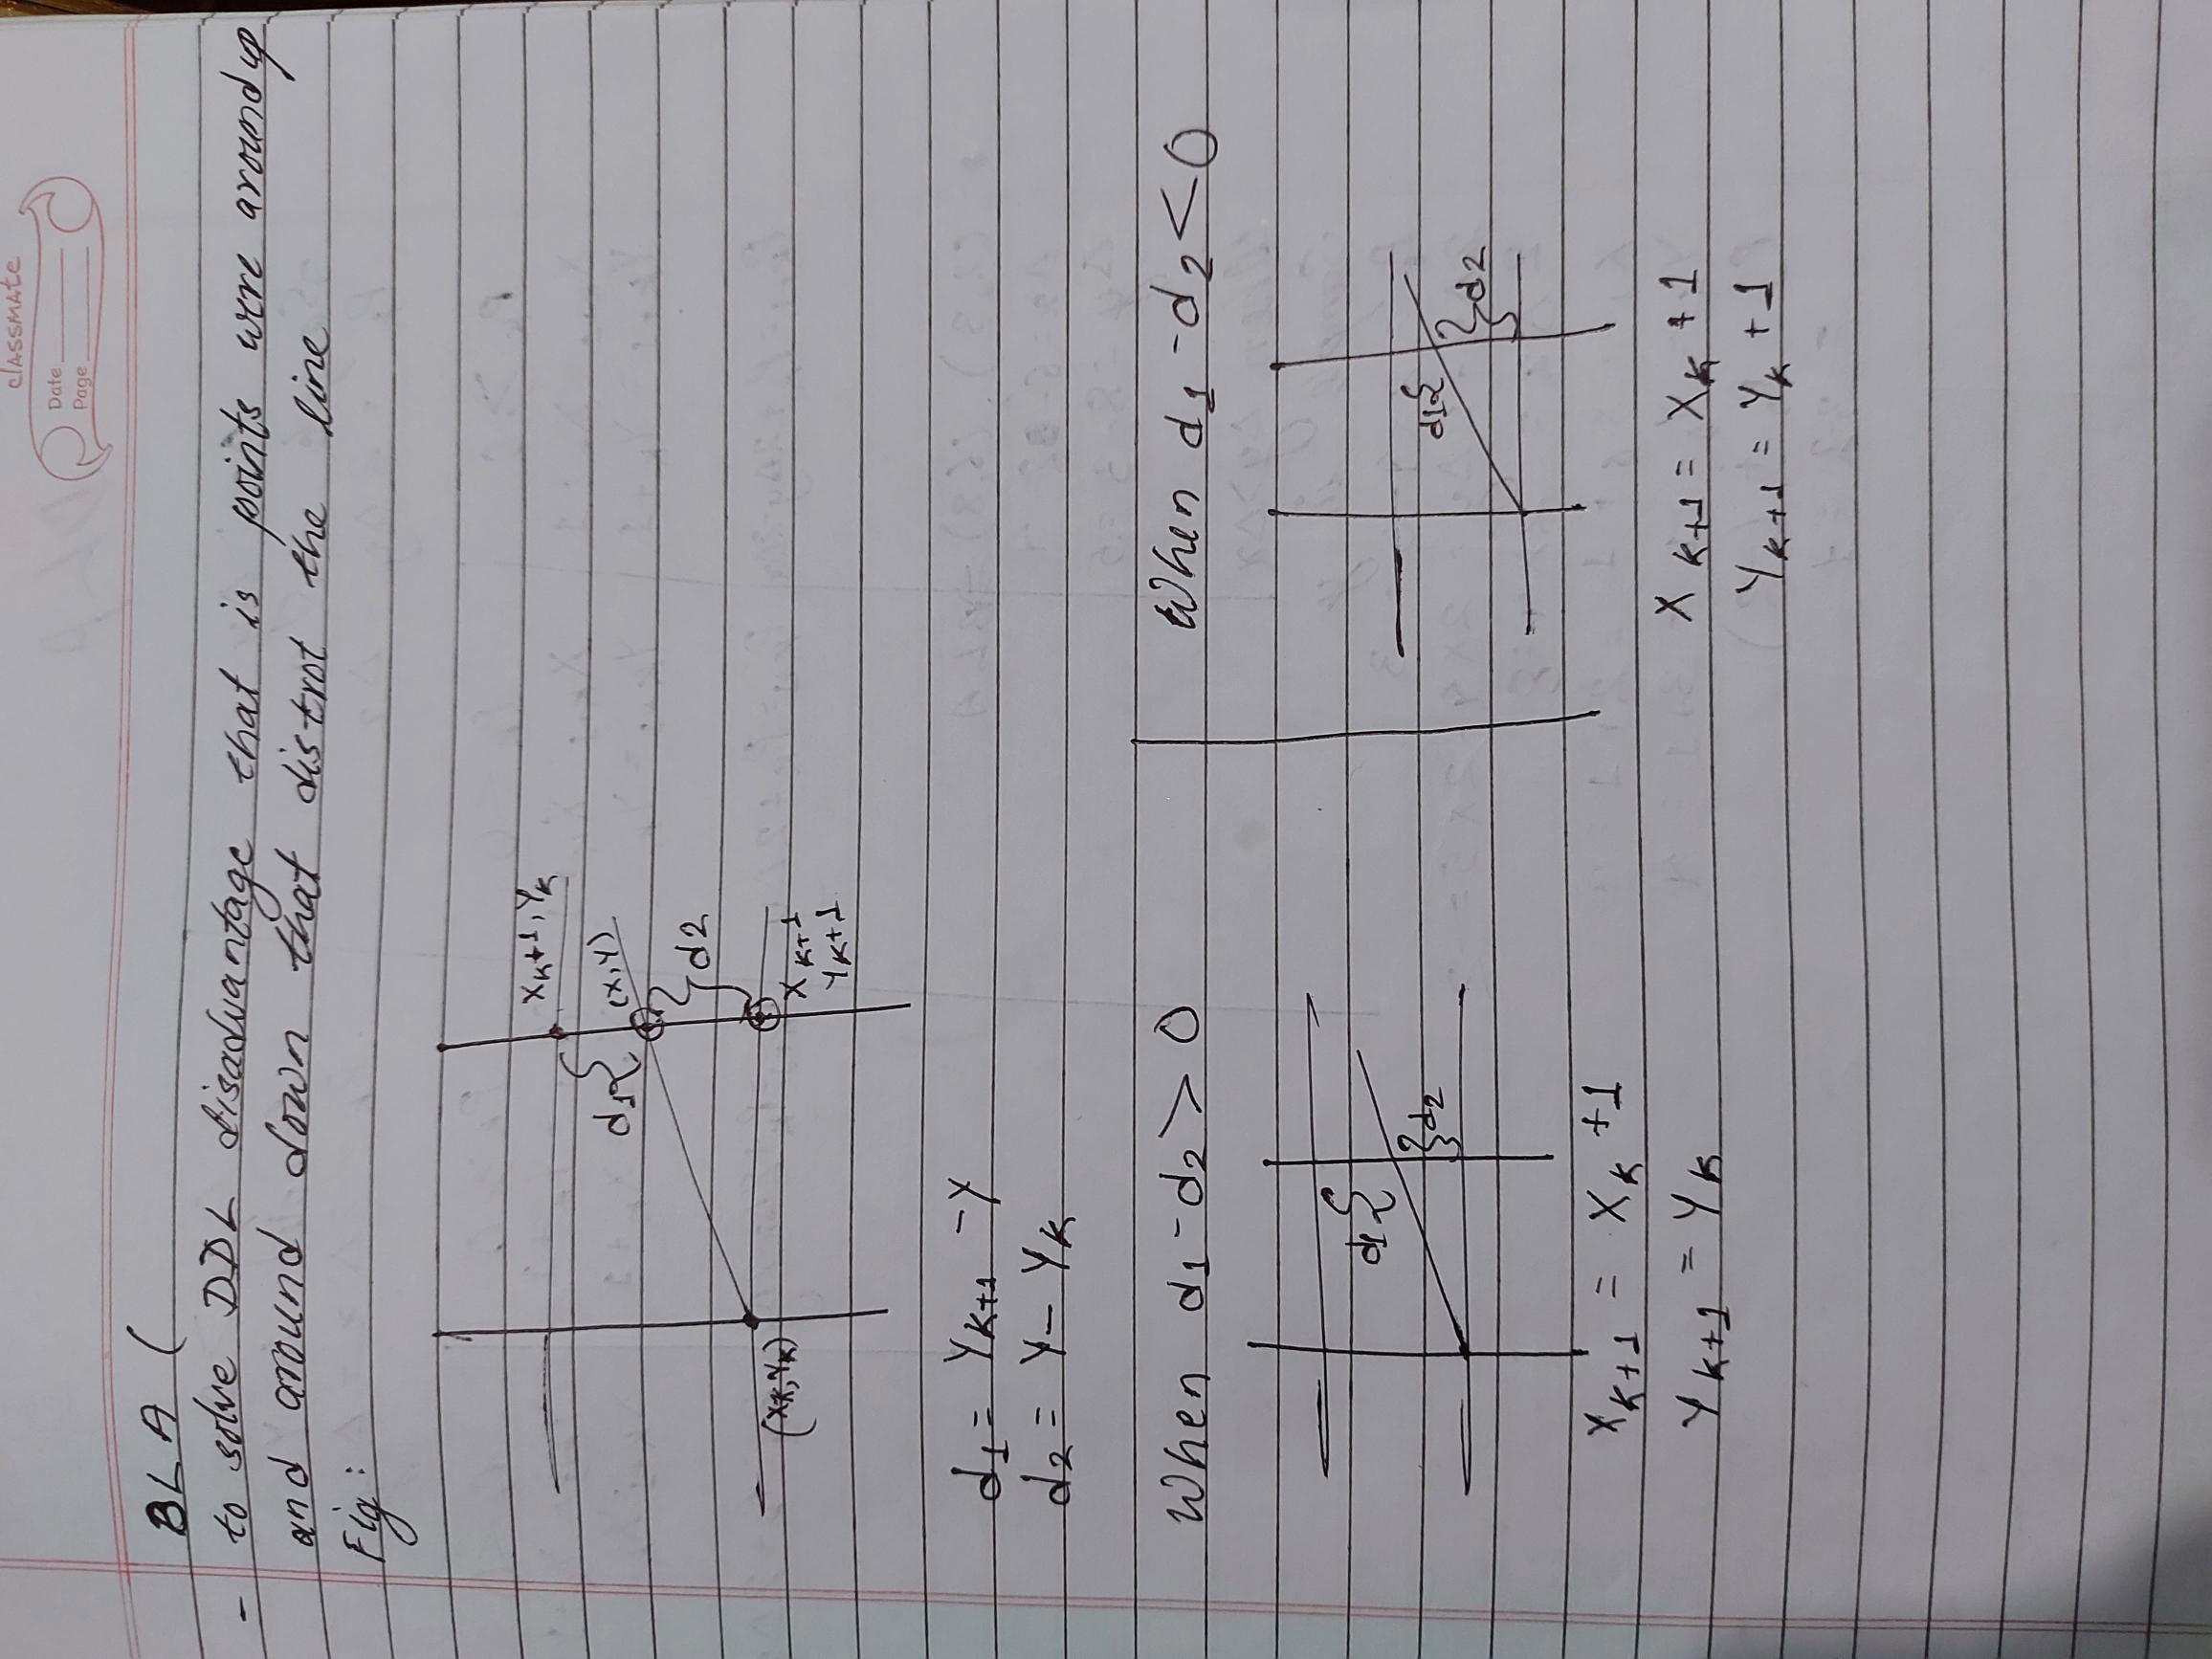 classmate
Date
Page
BLA (
- to solve DDL disadvantage that is points were around up
and around down that distrot the line
Fig:
xk+1, yk
d1
(x,y)
d2
(xk,yk)
xk+1
yk+1
d1 = yk+1 - y
d2 = y - yk
When d1 - d2 > 0
d1
d2
xk+1 = xk + 1
yk+1 = yk
When d1 - d2 < 0
d1
d2
xk+1 = xk + 1
yk+1 = yk + 1